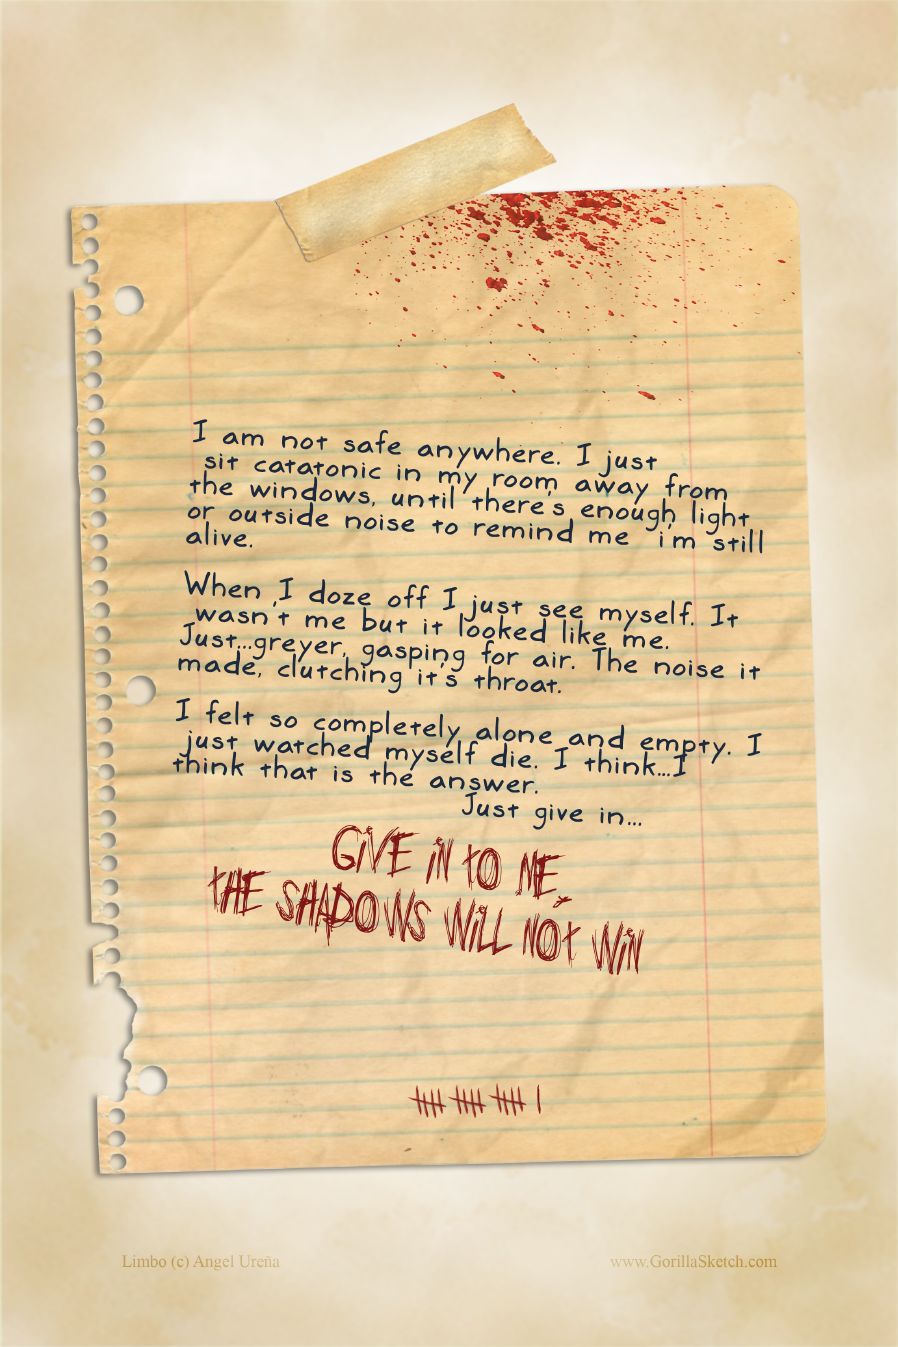 I am not safe anywhere. I just
sit catatonic in my room away from
the windows, until there's enough light
or outside noise to remind me i'm still
alive.
When I doze off I just see myself. It
wasn't me but it looked like me.
Just...greyer, gasping for air. The noise it
made, clutching it's throat.
I felt so completely alone and empty. I
just watched myself die. I think...I
think that is the answer.
Just give in...
GIVE IN TO ME,
THE SHADOWS WILL NOT WIN
Limbo (c) Angel Ureña
www.GorillaSketch.com